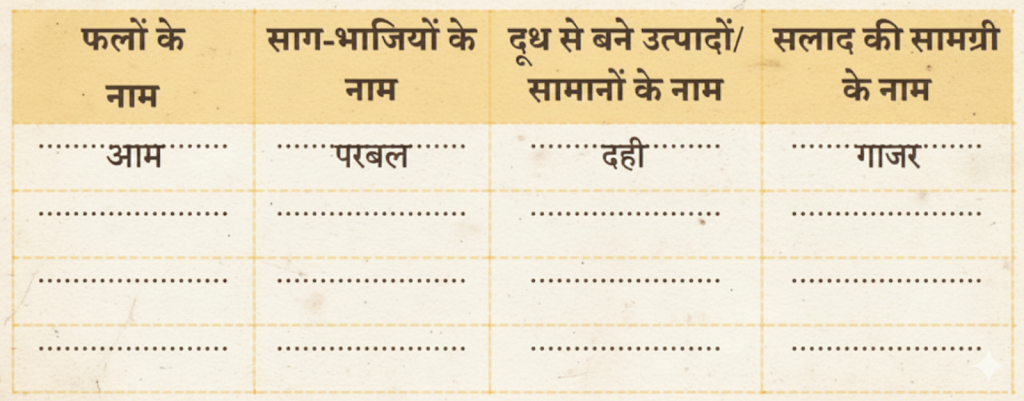 फलों के
नाम
साग-भाजियों के
नाम
दूध से बने उत्पादों/
सामानों के नाम
सलाद की सामग्री
के नाम
आम परबल दही गाजर